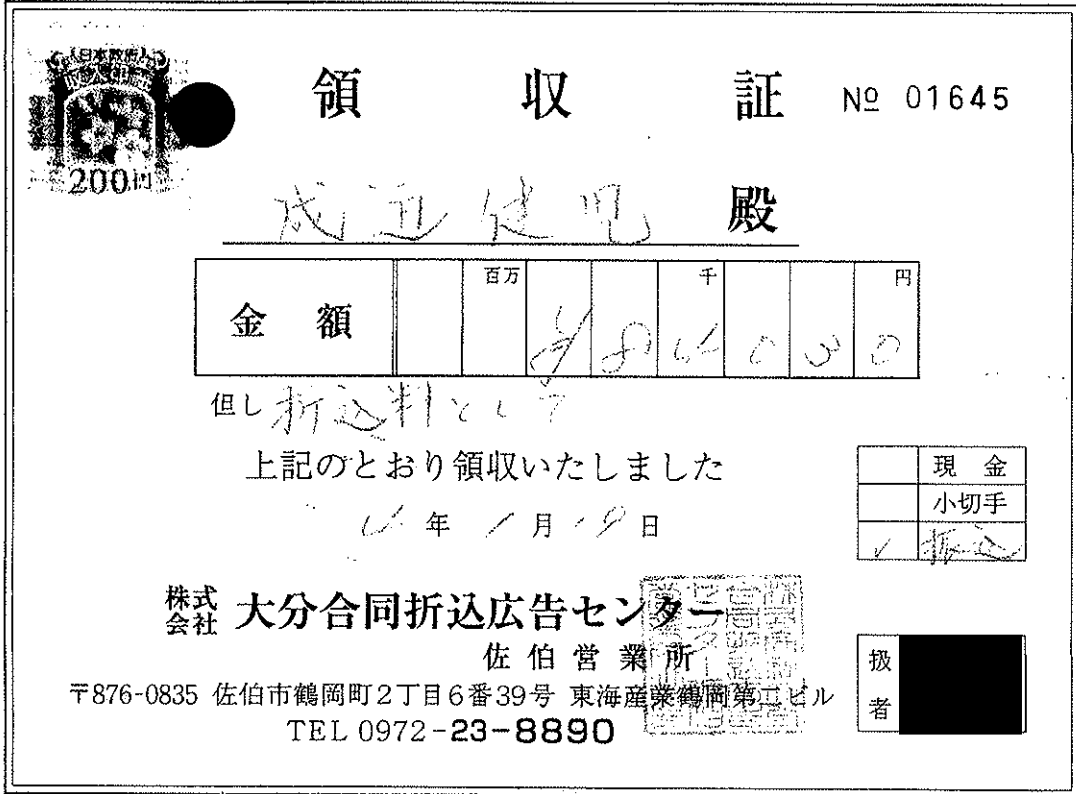 日本政府
収入印紙
200円
領収証 № 01645
成迫健児 殿
金額 百万 千 円
¥ 8 4 0 3 0
但し 折込料として
上記のとおり領収いたしました
年 1月19日
現金
小切手
✓ 振込
株式会社 大分合同折込広告センター
佐伯営業所
〒876-0835 佐伯市鶴岡町2丁目6番39号 東海産業鶴岡第二ビル
TEL 0972-23-8890
扱者